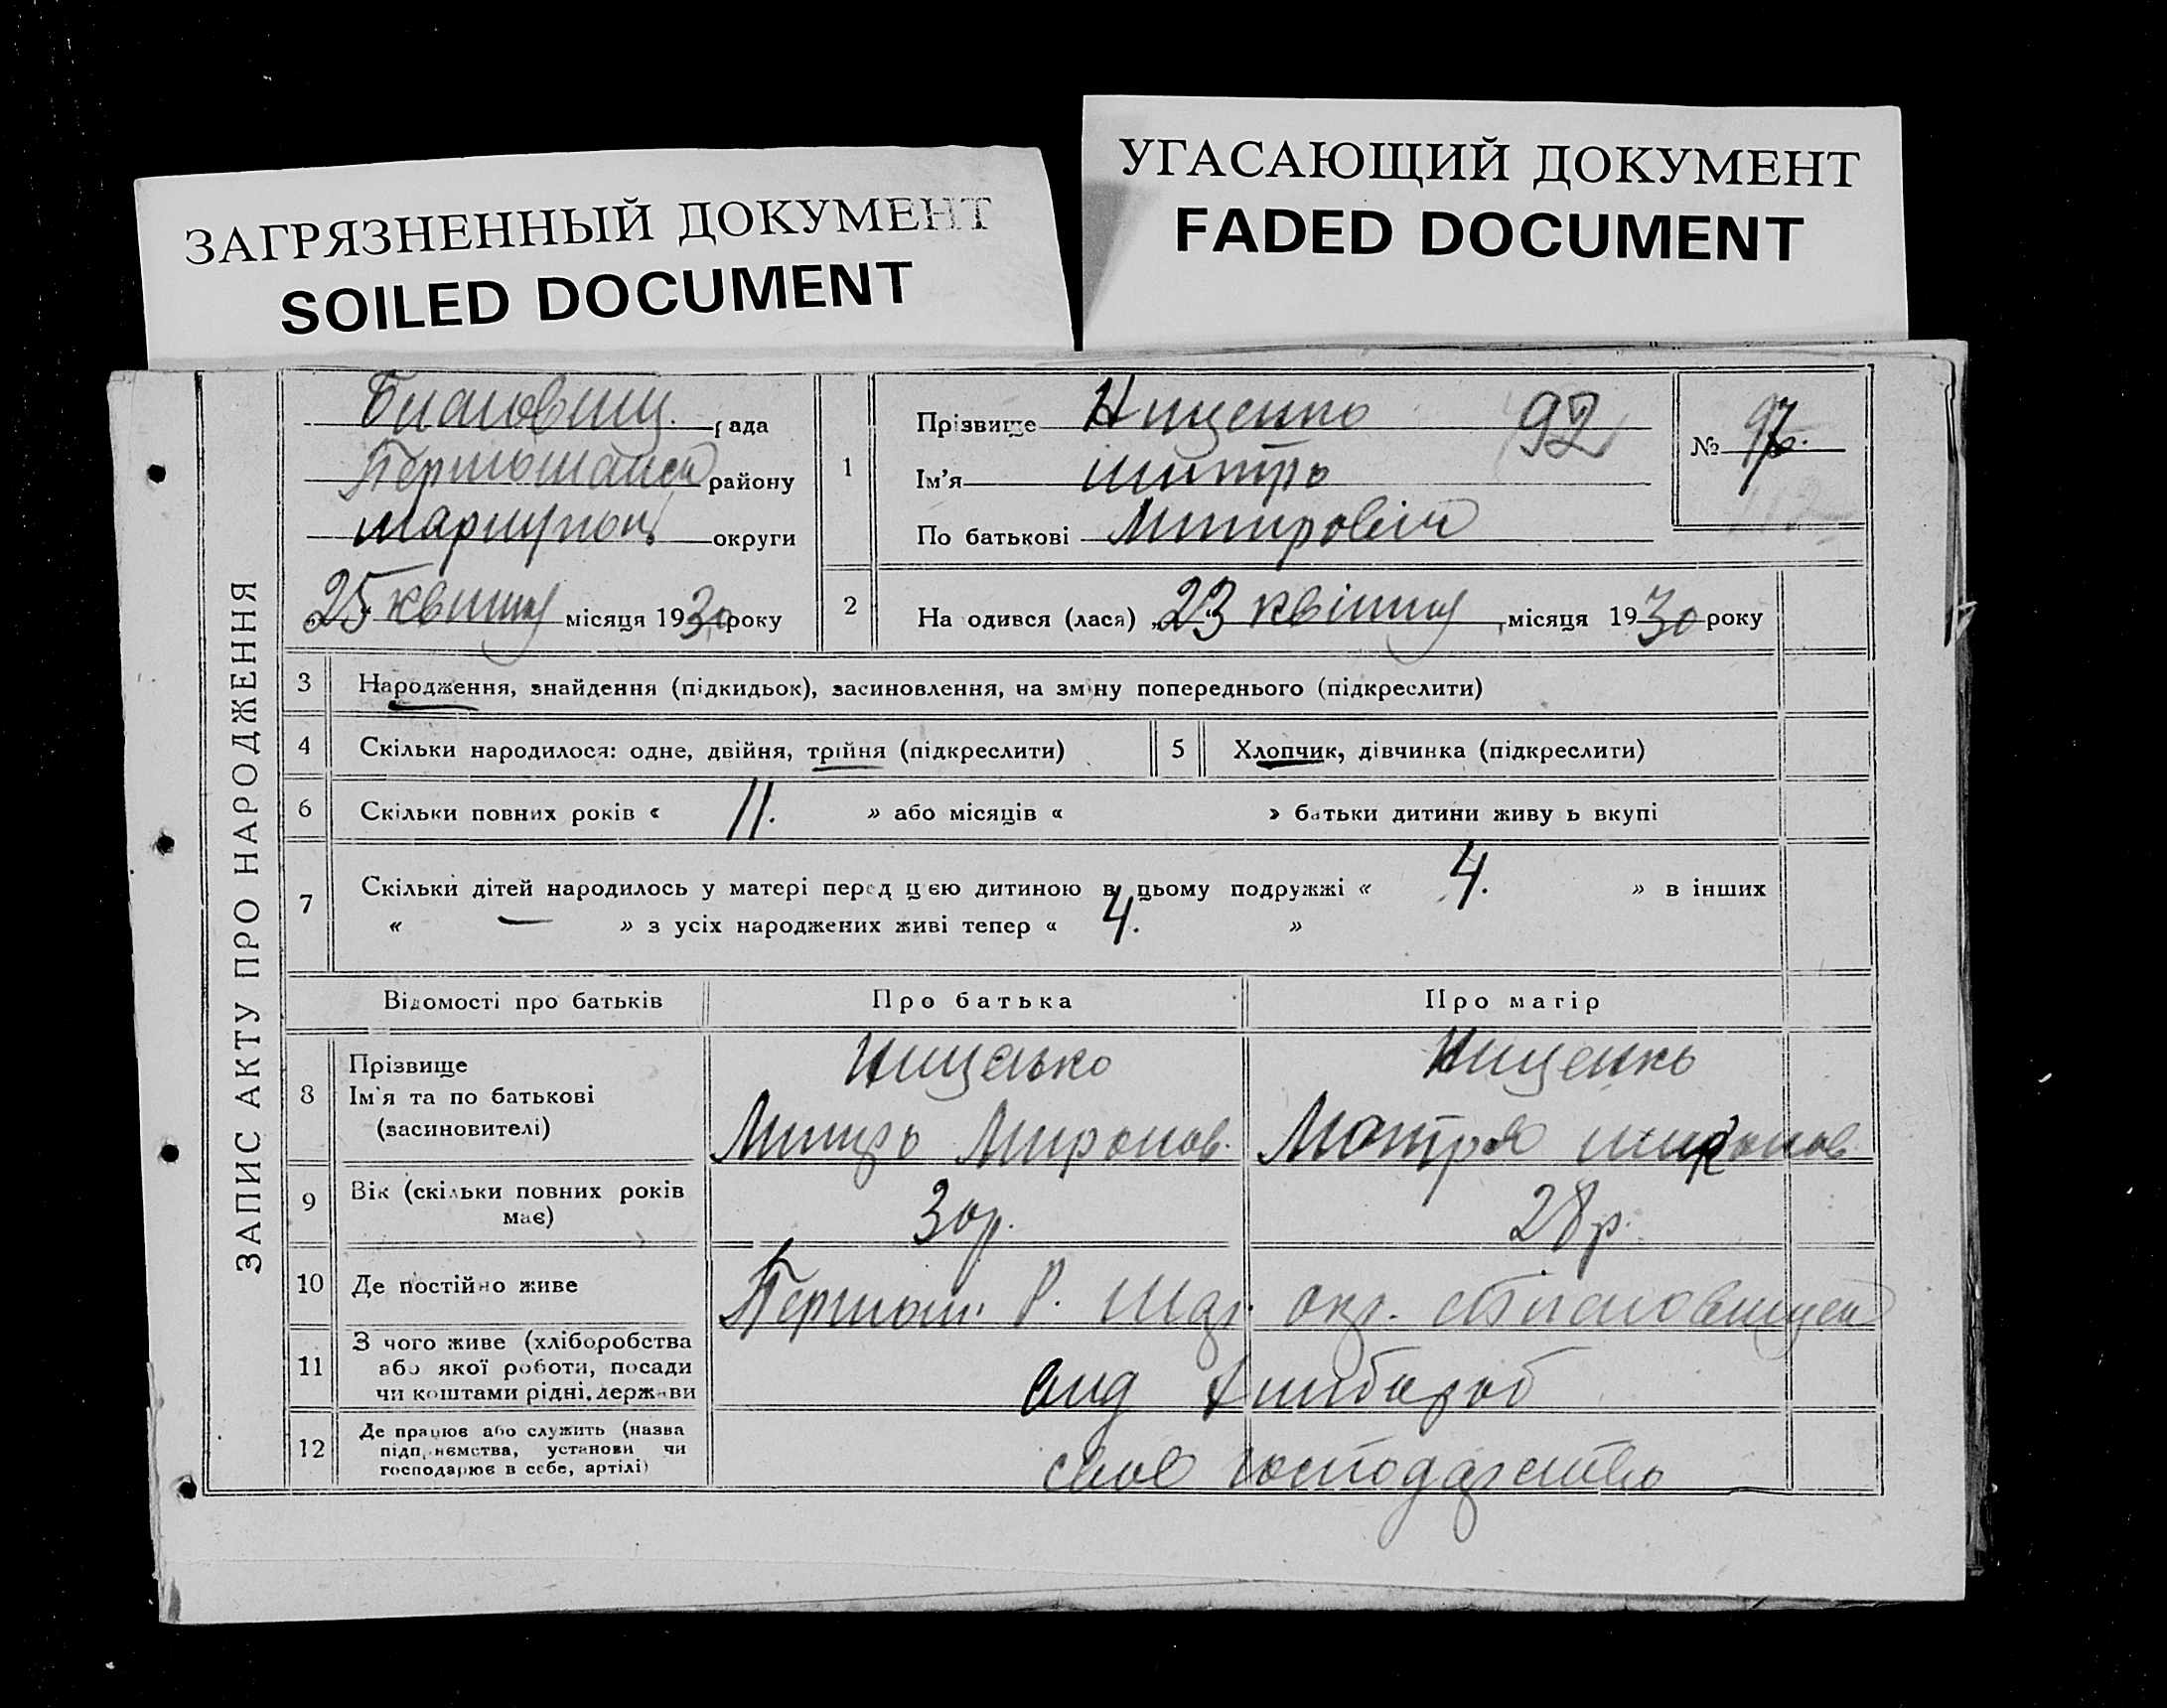 ЗАГРЯЗНЕННЫЙ ДОКУМЕНТ
SOILED DOCUMENT
УГАСАЮЩИЙ ДОКУМЕНТ
FADED DOCUMENT
ЗАПИС АКТУ ПРО НАРОДЖЕННЯ
рада
району
округи
25 квітня місяця 1930 року
1
Прізвище Ниценко 92
Ім'я Митро
По батькові
№ 97
2
На одився (лася) „23 квітня місяця 1930 року
3 Народження, знайдення (підкидьок), засиновлення, на зміну попереднього (підкреслити)
4 Скільки народилося: одне, двійня, трійня (підкреслити)
5 Хлопчик, дівчинка (підкреслити)
6 Скільки повних років « 11. » або місяців « » батьки дитини живу ь вкупі
7 Скільки дітей народилось у матері перед цією дитиною в цьому подружжі « 4. » в інших
« — » з усіх народжених живі тепер « 4. »
Відомості про батьків Про батька Про матір
8 Прізвище
Ім'я та по батькові
(засиновителі)
Ниценко
Митро Миронов.
Ниценко
Мотря
9 Вік (скільки повних років
має)
30 р.
28 р.
10 Де постійно живе
11 З чого живе (хліборобства
або якої роботи, посади
чи коштами рідні, держави
хлибороб
12 Де працює або служить (назва
підприємства, установи чи
господарює в себе, артілі)
своє господарство